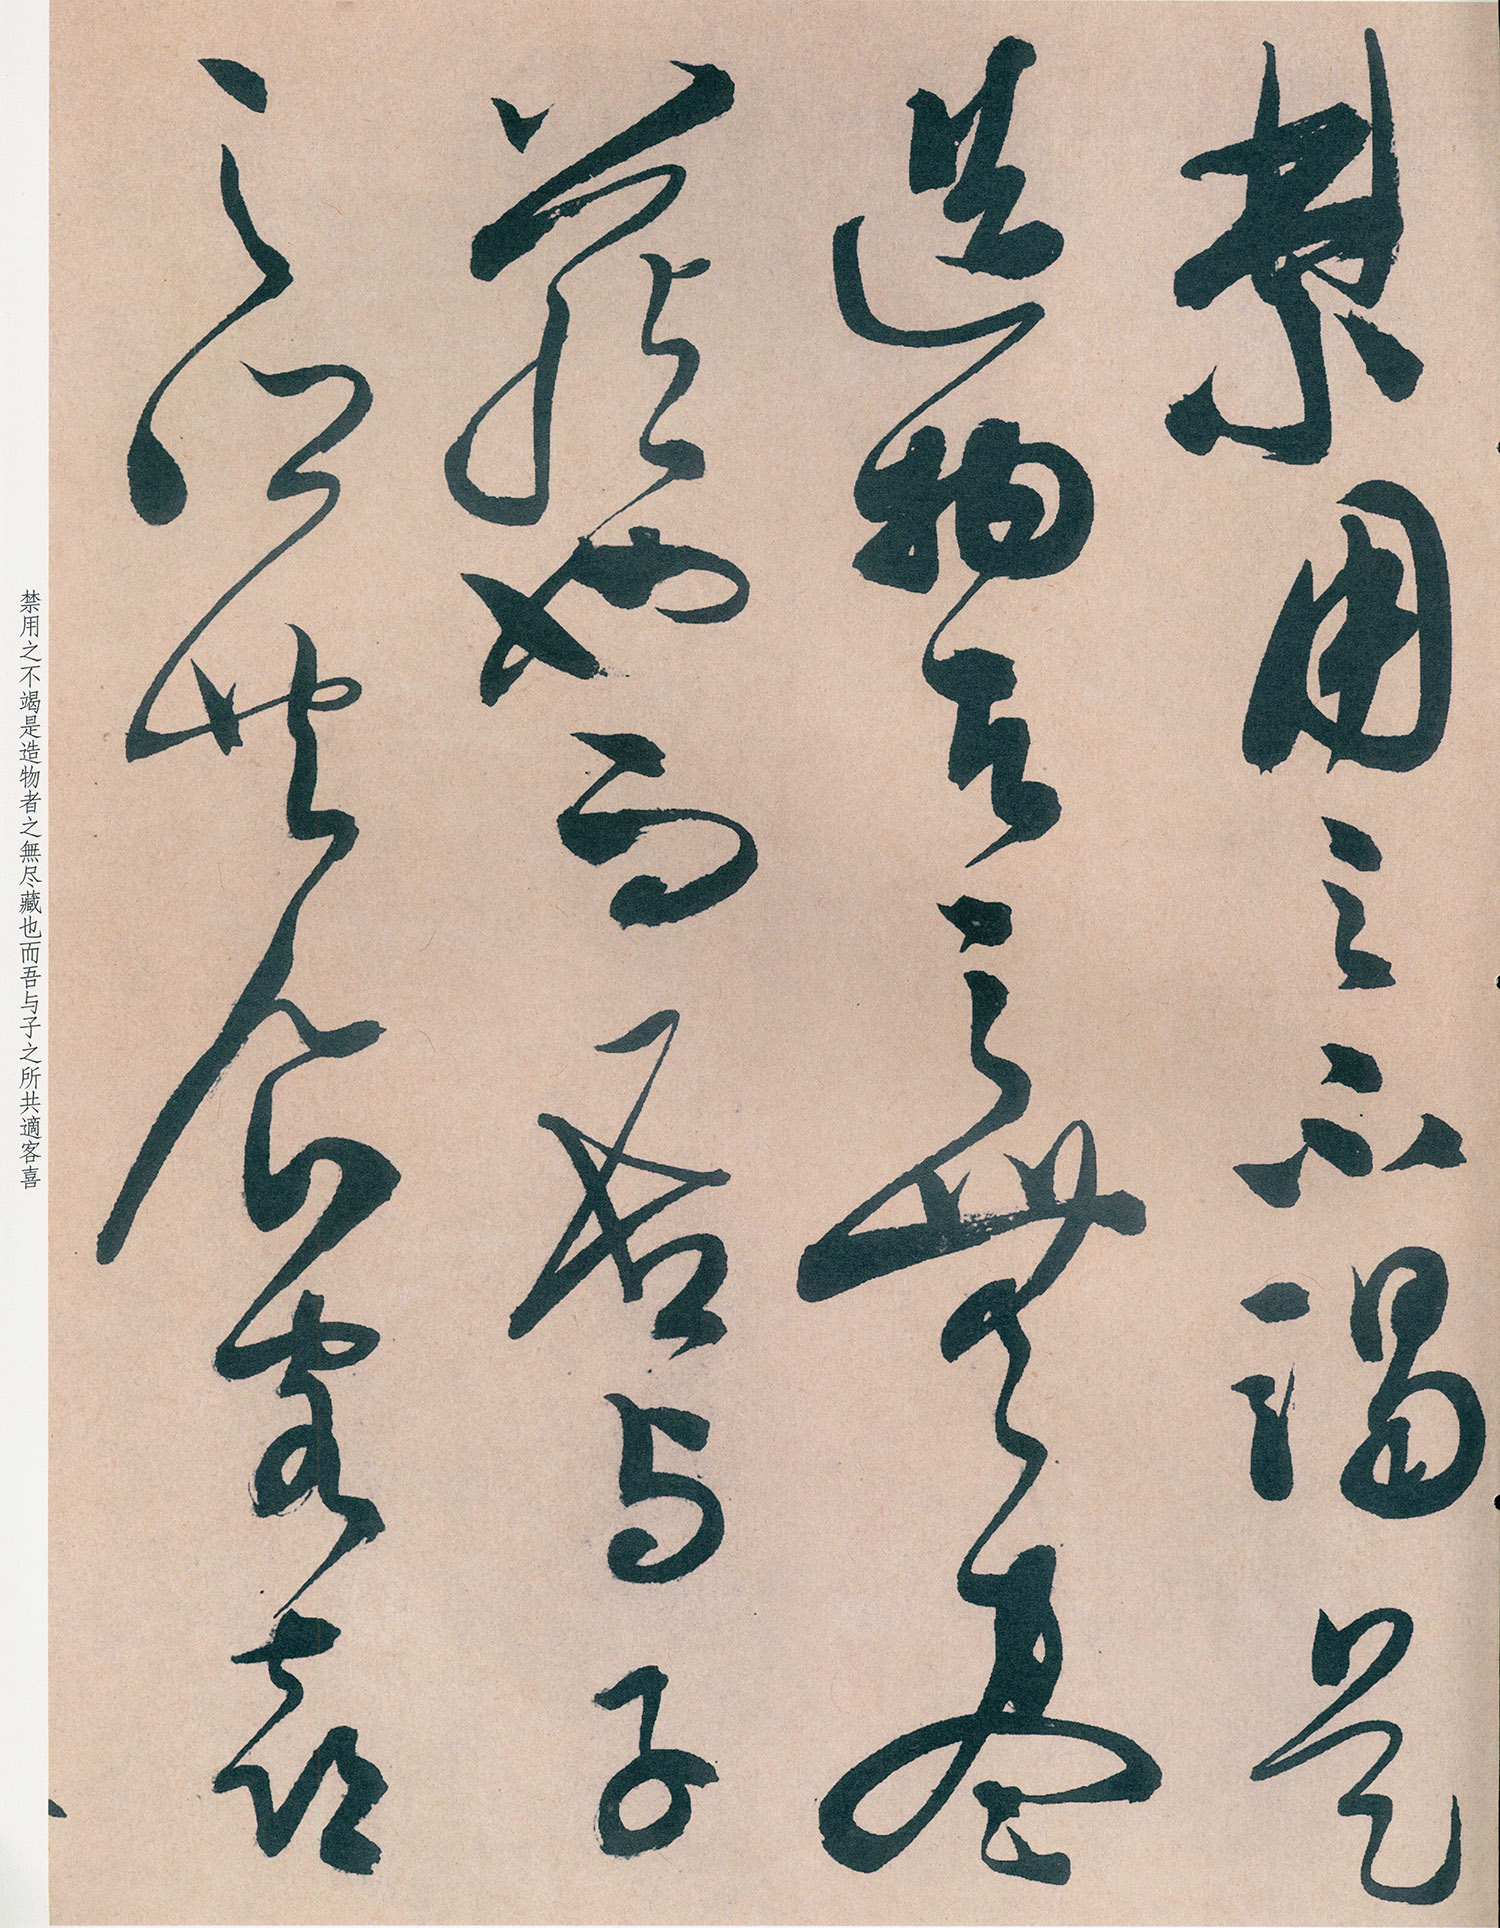 禁用之不竭是
造物者之無盡
藏也而吾与子
之所共適客喜
禁用之不竭是造物者之無尽藏也而吾与子之所共適客喜